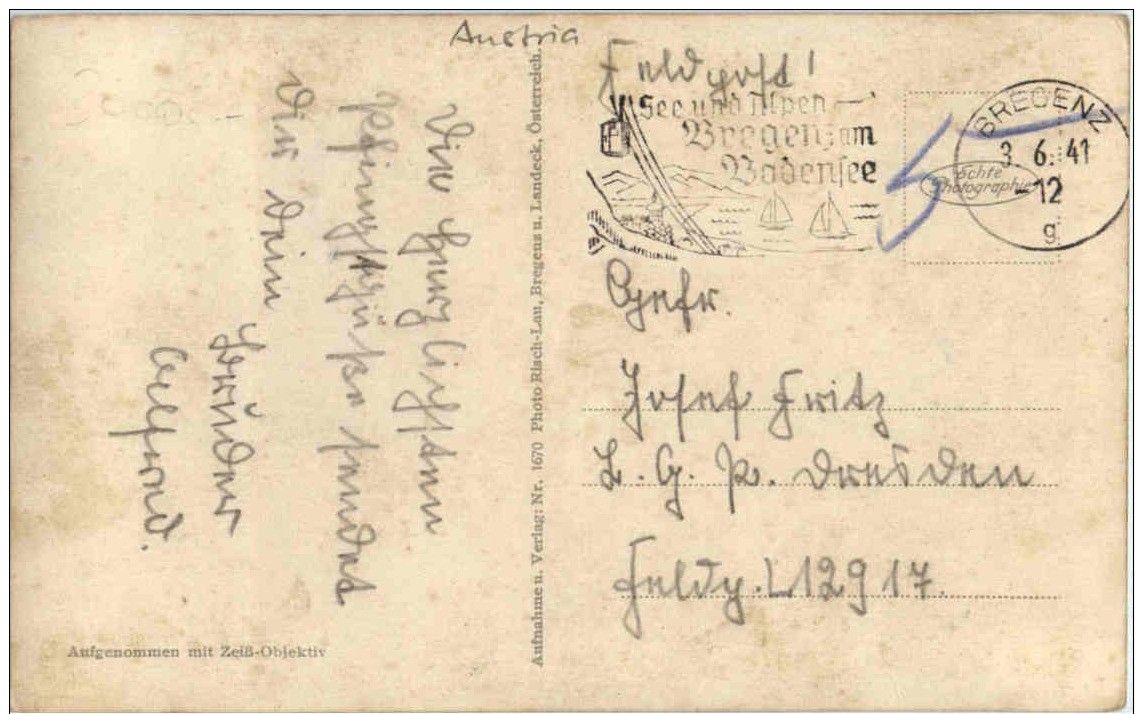 Austria
Die herzlichsten
Pfingstgrüße sendet
Dir dein
Bruder
Alfred.
Aufgenommen mit Zeiß-Objektiv
Aufnahme u. Verlag: Nr. 1670 Photo Risch-Lau, Bregenz u. Landeck, Österreich.
Feldpost!
See und Alpen
Bregenz am
Bodensee
BREGENZ
3.6.41
-12
g
echte
Photographie
Gefr.
Josef Fritz
L. G. P. Dresden
Feldp. L 12917.